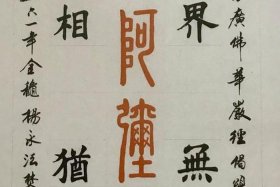 廣佛華嚴經偈
界無
阿彌
相猶
六一年金 楊永法焚